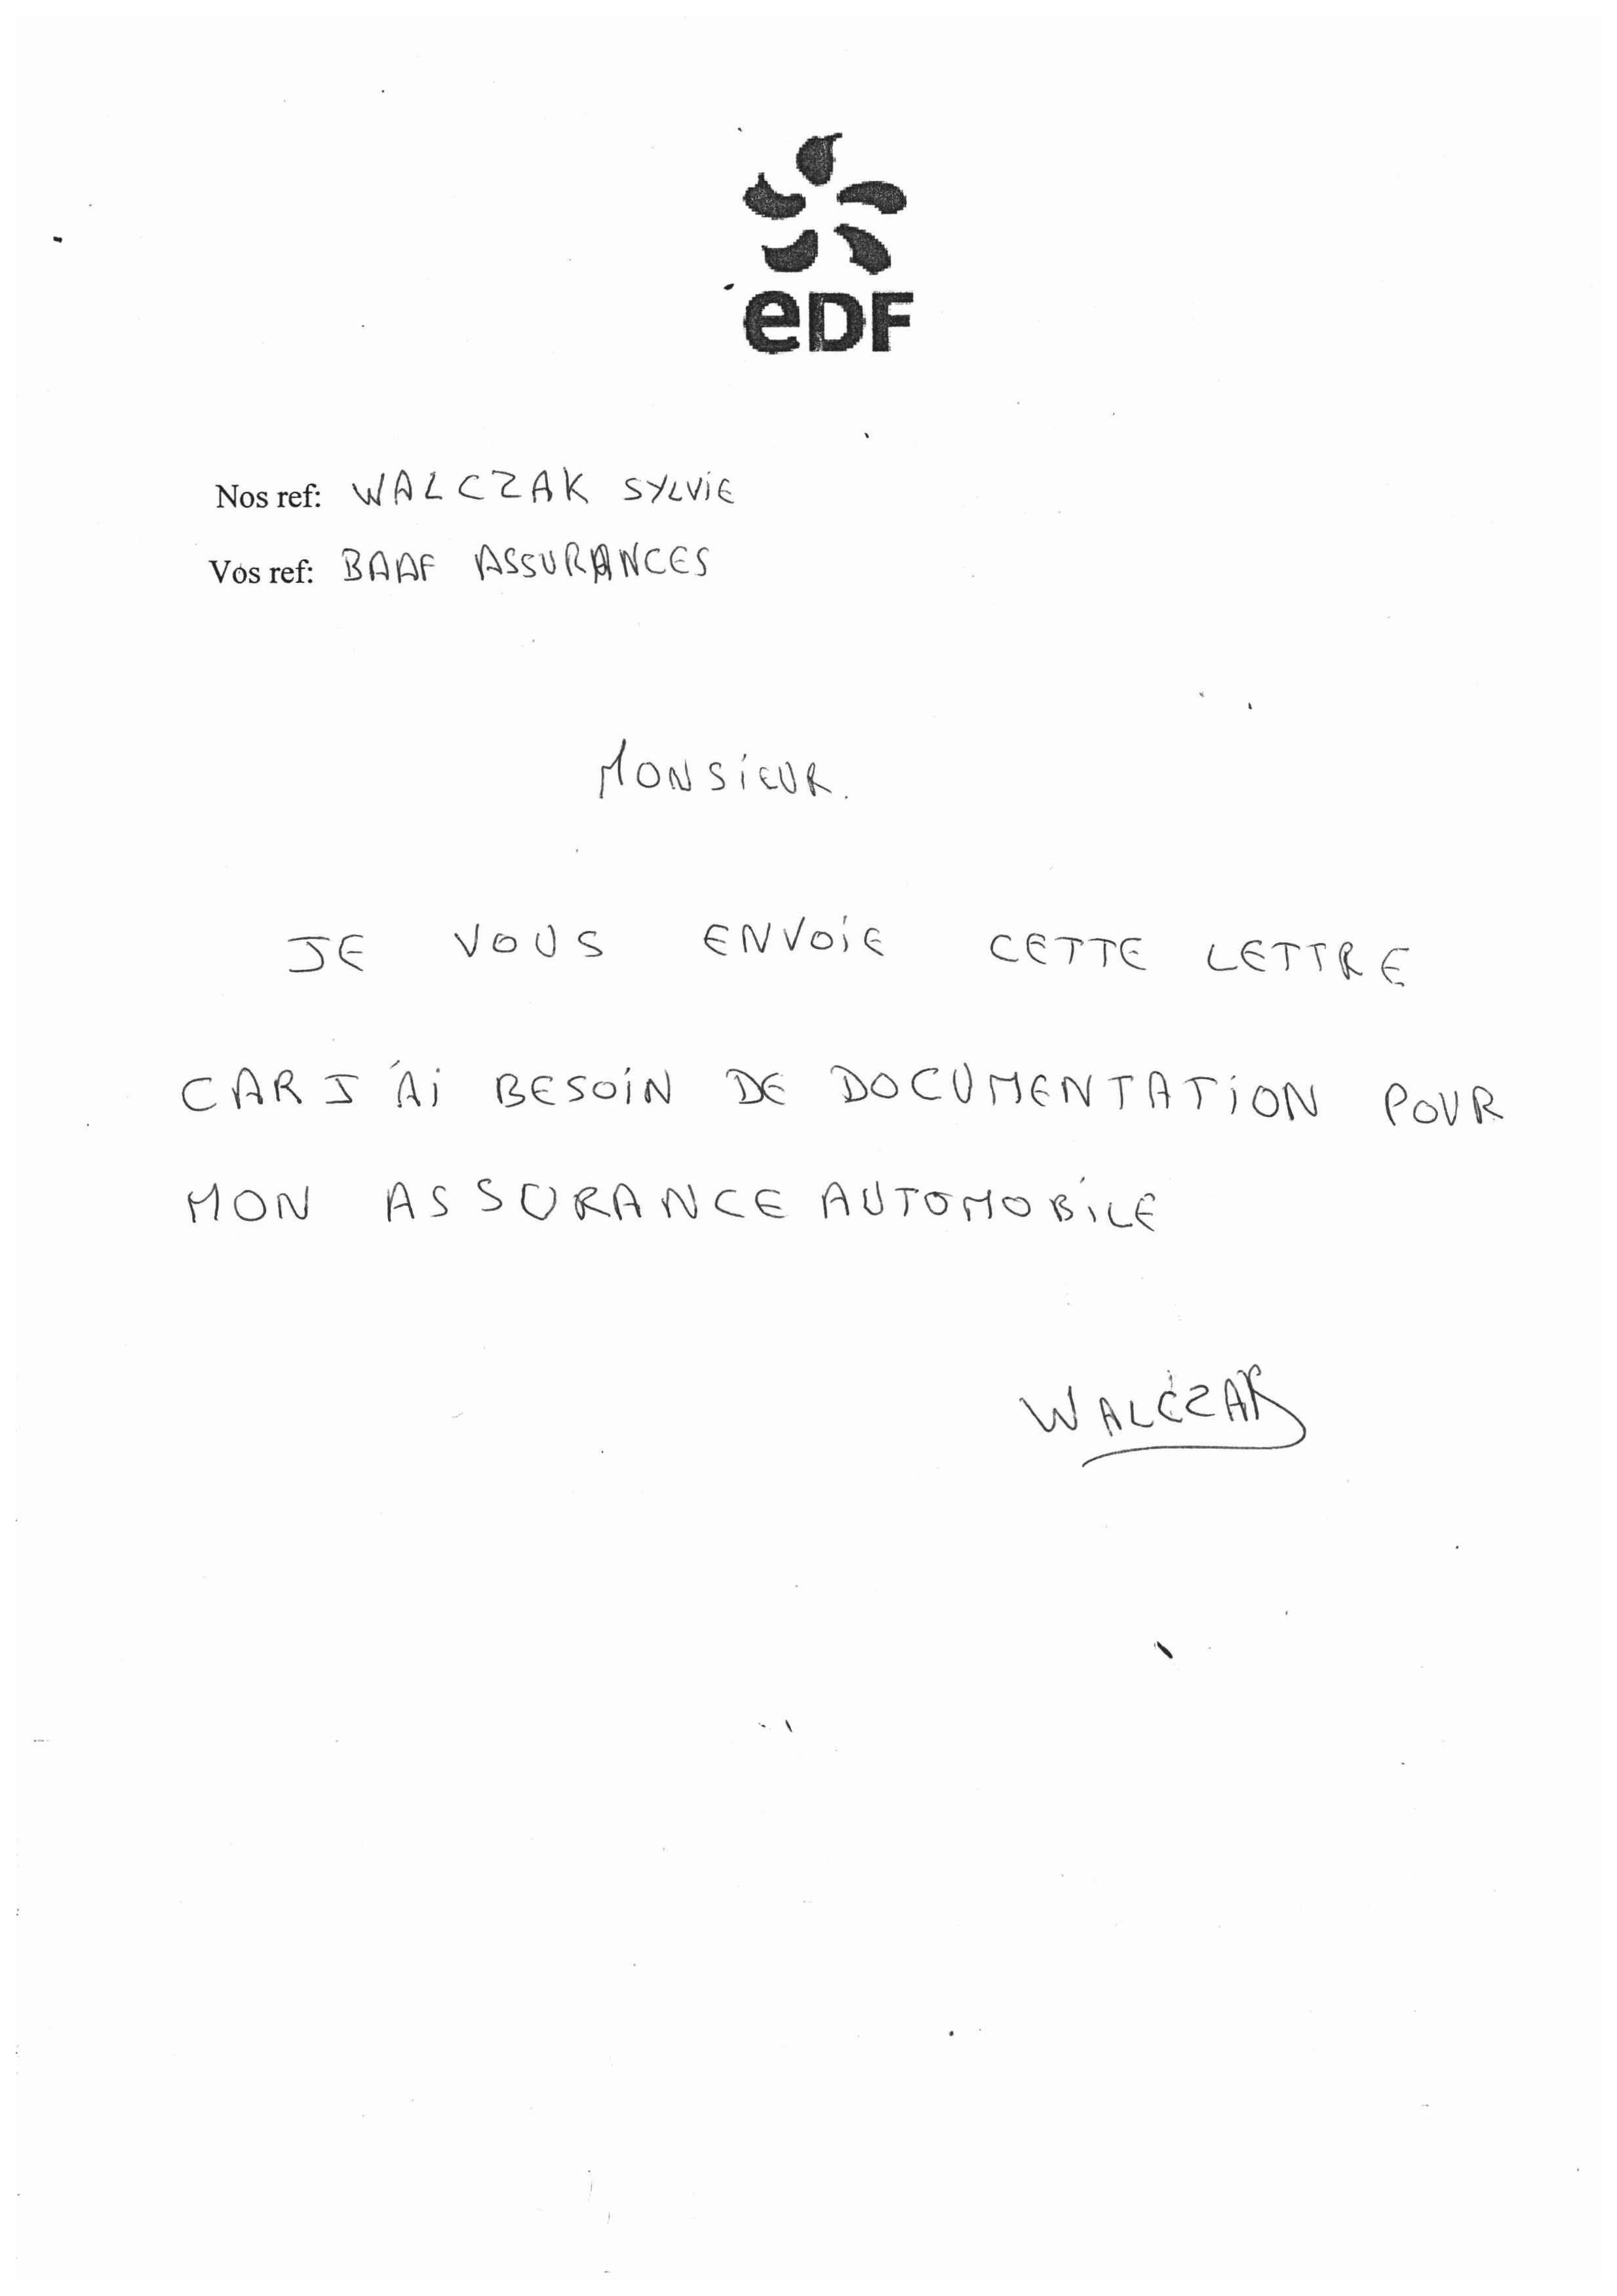 eDF
Nos ref: WALCZAK SYLVIE
Vos ref: BAAF ASSURANCES
MONSIEUR.
JE VOUS ENVOIE CETTE LETTRE
CAR J'AI BESOIN DE DOCUMENTATION POUR
MON ASSURANCE AUTOMOBILE
WALCZAK